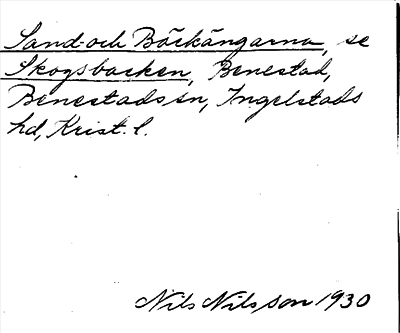 Sand- och Böckängarna, se
Skogsbacken, Benestad,
Benestads sn, Ingelstads
hd, Krist. l.
Nils Nilsson 1930